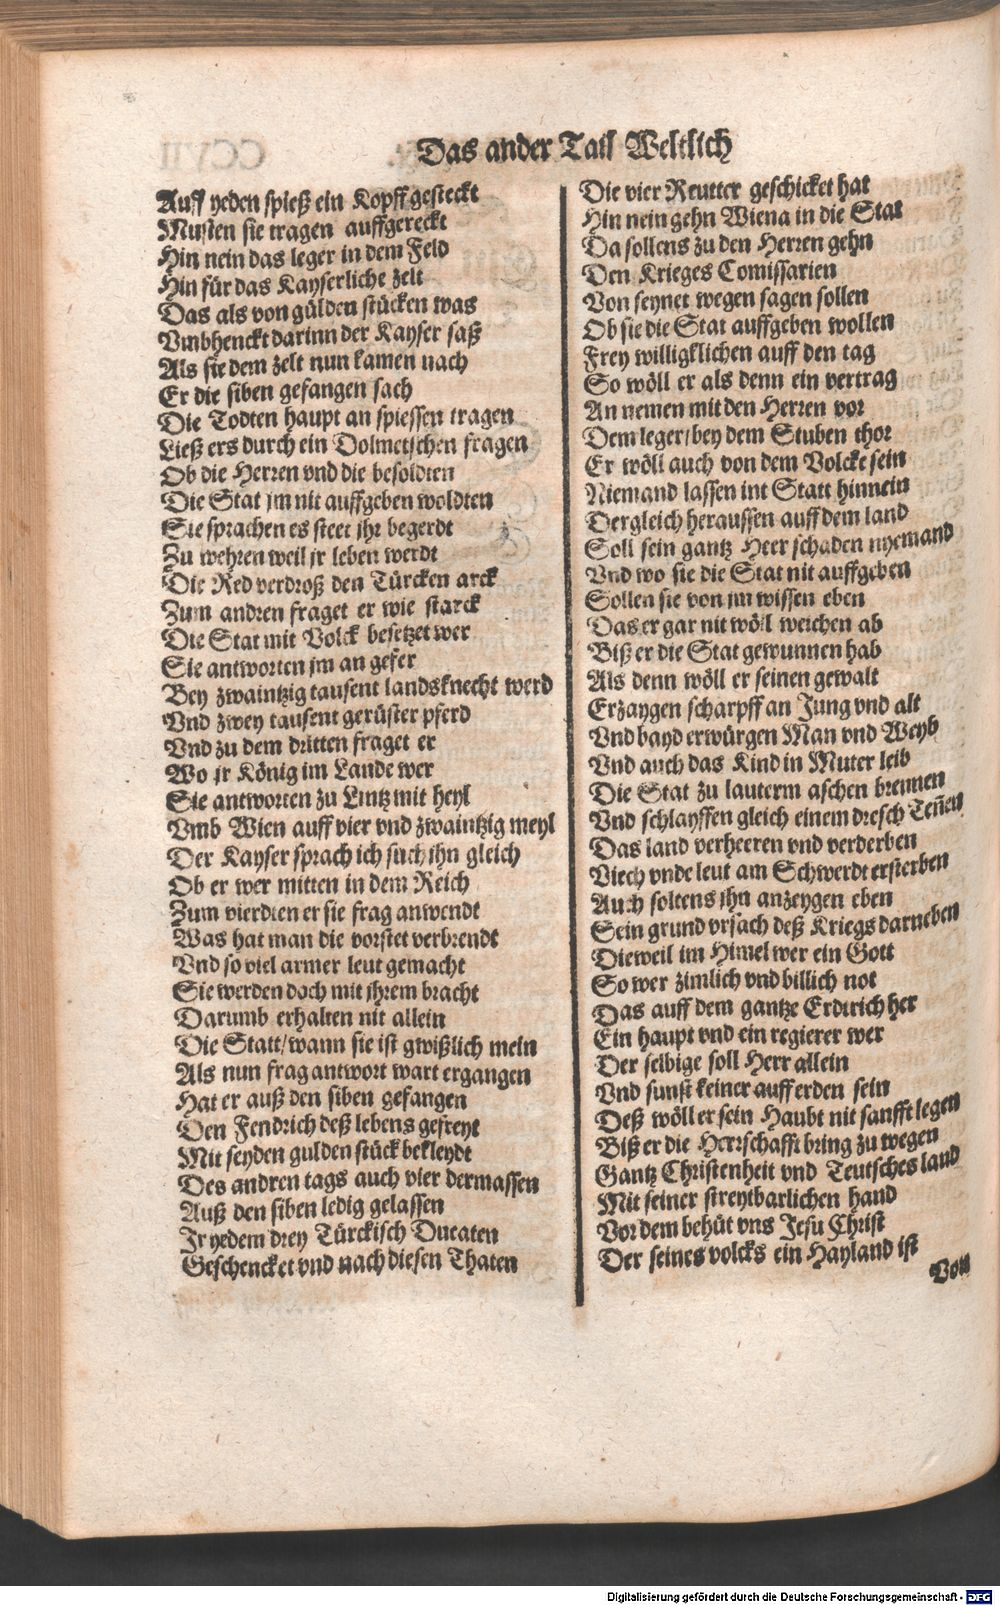 Das ander Tail Weltlich
Auff yeden spieß ein Kopff gesteckt
Musten sie tragen auffgereckt
Hin nein das leger in dem Feld
Hin für das Kayserliche zelt
Das als von gülden stücken was
Vmbhenckt darinn der Kayser saß
Als sie dem zelt nun kamen nach
Er die siben gefangen sach
Die Todten haupt an spiessen tragen
Ließ ers durch ein Dolmetschen fragen
Ob die Herren vnd die besoldten
Die Stat jm nit auffgeben woldten
Sie sprachen es steet jhr begerdt
Zu wehren weil jr leben werdt
Die Red verdroß den Türcken arck
Zum andren fraget er wie starck
Die Stat mit Volck besetzet wer
Sie antworten jm an gefer
Bey zwaintzig tausent landsknecht werd
Vnd zwey tausent gerüster pferd
Vnd zu dem dritten fraget er
Wo jr König im Lande wer
Sie antworten zu Lintz mit heyl
Vmb Wien auff vier vnd zwaintzig meyl
Der Kayser sprach ich such jhn gleich
Ob er wer mitten in dem Reich
Zum vierdten er sie frag anwendt
Was hat man die vorstet verbrendt
Vnd so viel armer leut gemacht
Sie werden doch mit jhrem bracht
Darumb erhalten nit allein
Die Statt/wann sie ist gwißlich mein
Als nun frag antwort wart ergangen
Hat er auß den siben gefangen
Den Fendrich deß lebens gefreyt
Mit seyden gulden stück bekleydt
Des andren tags auch vier dermassen
Auß den siben ledig gelassen
Jr yedem drey Türckisch Ducaten
Geschencket vnd nach diesen Thaten
Die vier Reutter geschicket hat
Hin nein gehn Wiena in die Stat
Da sollens zu den Herren gehn
Den Krieges Comissarien
Von seynet wegen sagen sollen
Ob sie die Stat auffgeben wollen
Frey willigklichen auff den tag
So wöll er als denn ein vertrag
An nemen mit den Herren vor
Dem leger/bey dem Stuben thor
Er wöll auch von dem Volcke sein
Niemand lassen int Statt hinnein
Dergleich heraussen auff dem land
Soll sein gantz Heer schaden nyemand
Vnd wo sie die Stat nit auffgeben
Sollen sie von jm wissen eben
Das er gar nit wöll weichen ab
Biß er die Stat gewunnen hab
Als denn wöll er seinen gewalt
Erzaygen scharpff an Jung vnd alt
Vnd bayd erwürgen Man vnd Weyb
Vnd auch das Kind in Muter leib
Die Stat zu lauterm aschen brennen
Vnd schlayffen gleich einem dresch Teñen
Das land verheeren vnd verderben
Viech vnde leut am Schwerdt ersterben
Auch soltens jhn anzeygen eben
Sein grund vrsach deß Kriegs darneben
Dieweil im Himel wer ein Gott
So wer zimlich vnd billich not
Das auff dem gantze Erdtrich her
Ein haupt vnd ein regierer wer
Der selbige soll Herr allein
Vnd sunst keiner auff erden sein
Deß wöll er sein Haubt nit sanfft legen
Biß er die Herrschafft bring zu wegen
Gantz Christenheit vnd Teutsches land
Mit seiner streytbarlichen hand
Vor dem behüt vns Jesu Christ
Der seines volcks ein Hayland ist
Von
Digitalisierung gefördert durch die Deutsche Forschungsgemeinschaft - DFG